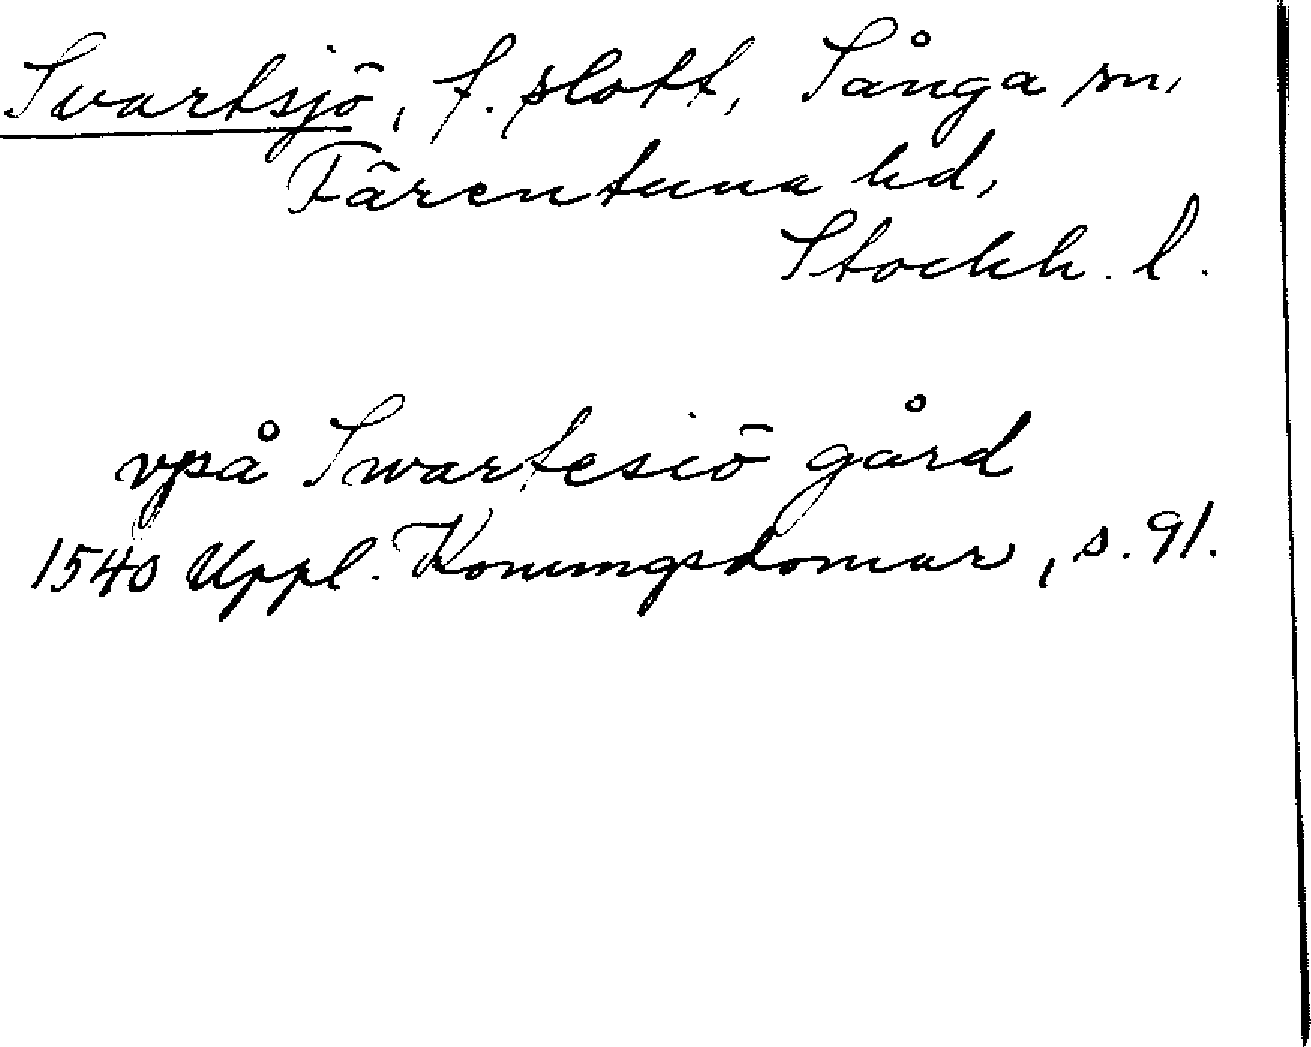 Svartsjö, f. slott, Sånga sn,
Färentuna hd,
Stockh. l.
vpå Swartesiö gård
1540 Uppl. Konungsdomar, s. 91.